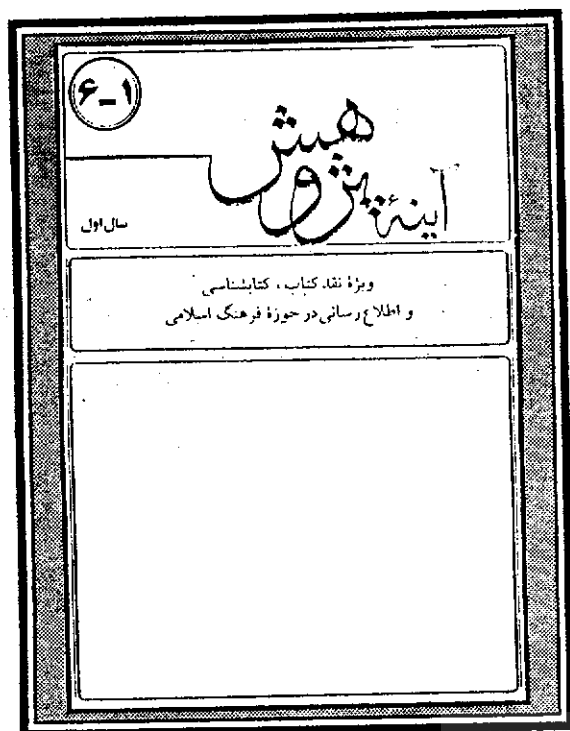 ۶-۱
آینهٔ پژوهش
سال اول
ویژهٔ نقد کتاب، کتابشناسی
و اطلاع رسانی در حوزهٔ فرهنگ اسلامی